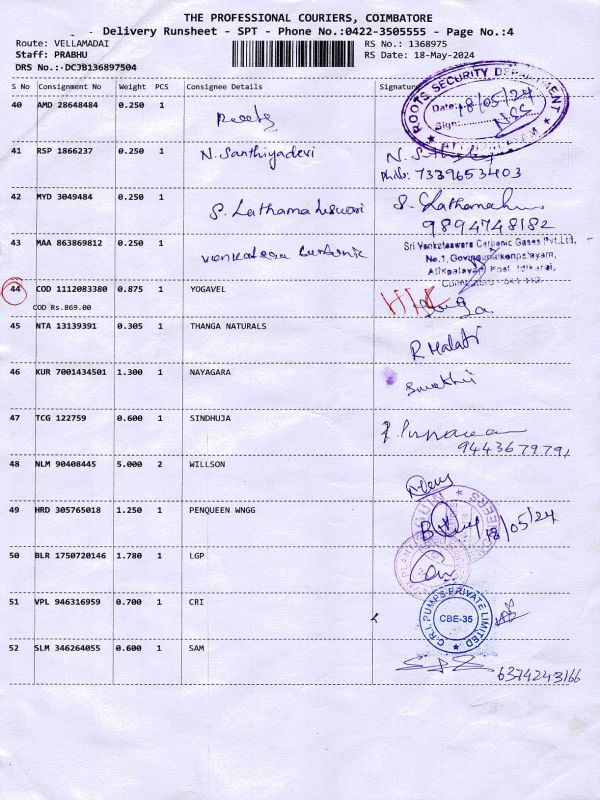 THE PROFESSIONAL COURIERS, COIMBATORE
Delivery Runsheet - SPT - Phone No.:0422-3505555 - Page No.:4
Route: VELLAMADAI RS No.: 1368975
Staff: PRABHU RS Date: 18-May-2024
DRS No.:-DCJB136897504
S No Consignment No Weight PCS Consignee Details Signature
40 AMD 28648484 0.250 1 Roots
ROOTS SECURITY DEPARTMENT
Date: 18/05/24
Sign:
41 RSP 1866237 0.250 1 N. Santhiyadevi
Ph.No: 7339653403
42 MYD 3049484 0.250 1 S. Lathamaheswari
9894748182
43 MAA 863869812 0.250 1
Sri Venkateswara Carbonic Gases Pvt.Ltd,
Post Idikarai,
44 COD 1112083380 0.875 1 YOGAVEL
COD Rs.869.00
45 NTA 13139391 0.305 1 THANGA NATURALS
R Malati
46 KUR 7001434501 1.300 1 NAYAGARA
47 TCG 122759 0.600 1 SINDHUJA
9443679791
48 NLM 90408445 5.000 2 WILLSON
49 HRD 305765018 1.250 1 PENQUEEN WNGG
18/05/24
50 BLR 1750720146 1.780 1 LGP
51 VPL 946316959 0.700 1 CRI
C.R.I. PUMPS PRIVATE LIMITED
CBE-35
52 SLM 346264055 0.600 1 SAM
6374243166